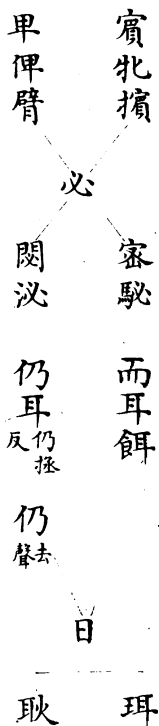 賓牝擯
卑俾臂
必
密駜
閟泌
而耳餌
仍耳仍拯反
仍去聲
日
珥
耿